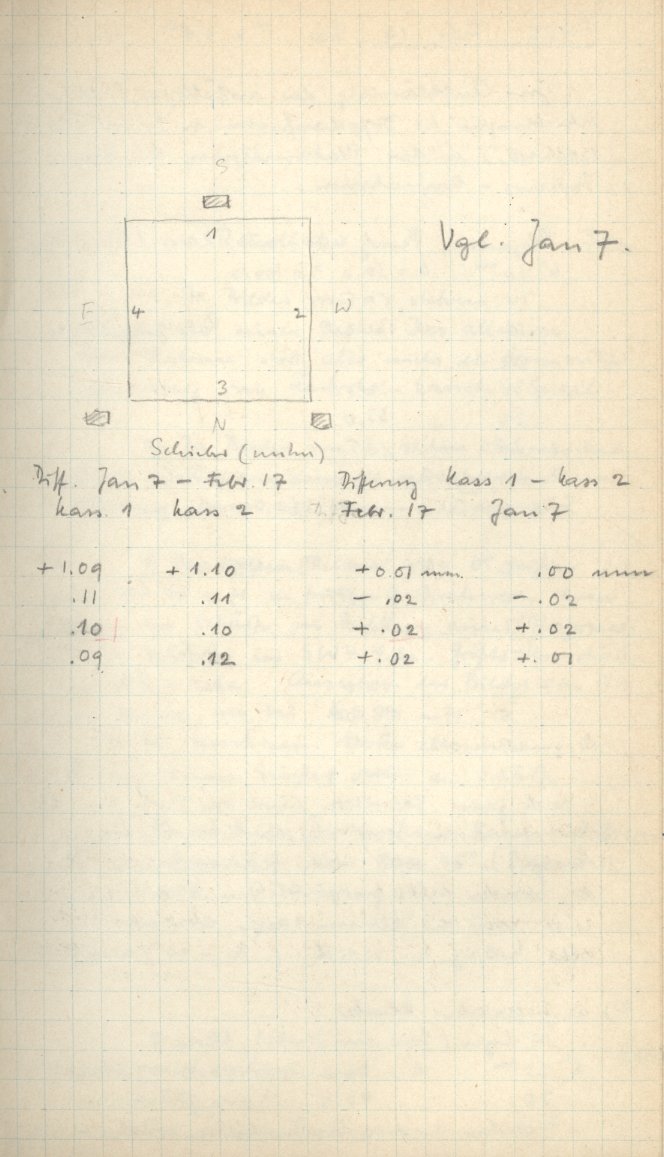 S
1
Vgl. Jan 7.
E 4 2 W
3
N
Schieber (unten)
Diff. Jan 7 – Febr. 17 Differenz Kass 1 – Kass 2
Kass. 1 Kass 2 Febr. 17 Jan 7
+1.09 +1.10 +0.01 mm .00 mm
.11 .11 – .02 – .02
.10 .10 +.02 +.02
.09 .12 +.02 +.01